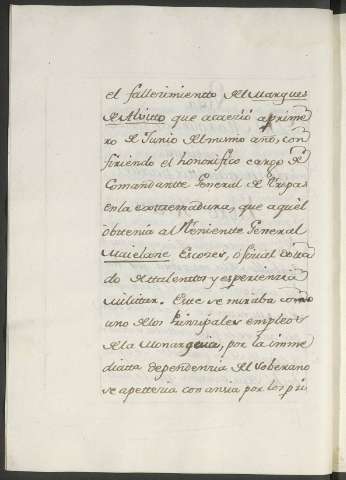 el fallecimientto del Marques
de Alvitto que acaeció a prime
ro de Junio del mismo año, con
firiendo el honorifico cargo de
Comandantte General de Tropas
en la extremadura, que aquel
obttenia al Theniente General
Escoses, oficial dotta
do de ttalenttos y esperiencia
Militar. Este se miraba como
uno de los Principales empleos
de la Monarquia, por la imme
diatta dependencia del Soberano
se apetteria con ansia por los pri